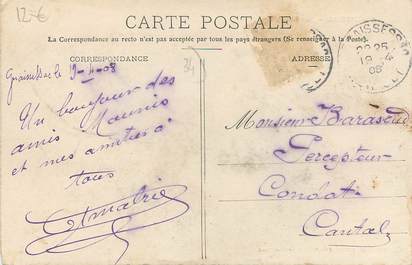 12-€
CARTE POSTALE
La Correspondance au recto n'est pas acceptée par tous les pays étrangers (Se renseigner à la Poste).
CORRESPONDANCE
ADRESSE
34
Graissessac le 9-4-08
Un bonjour des
amis Maunis
et mes amitiés à
tous
Monsieur Barascud
Percepteur
Condat
Cantal
GRAISSESSAC
20 25
19 4
08